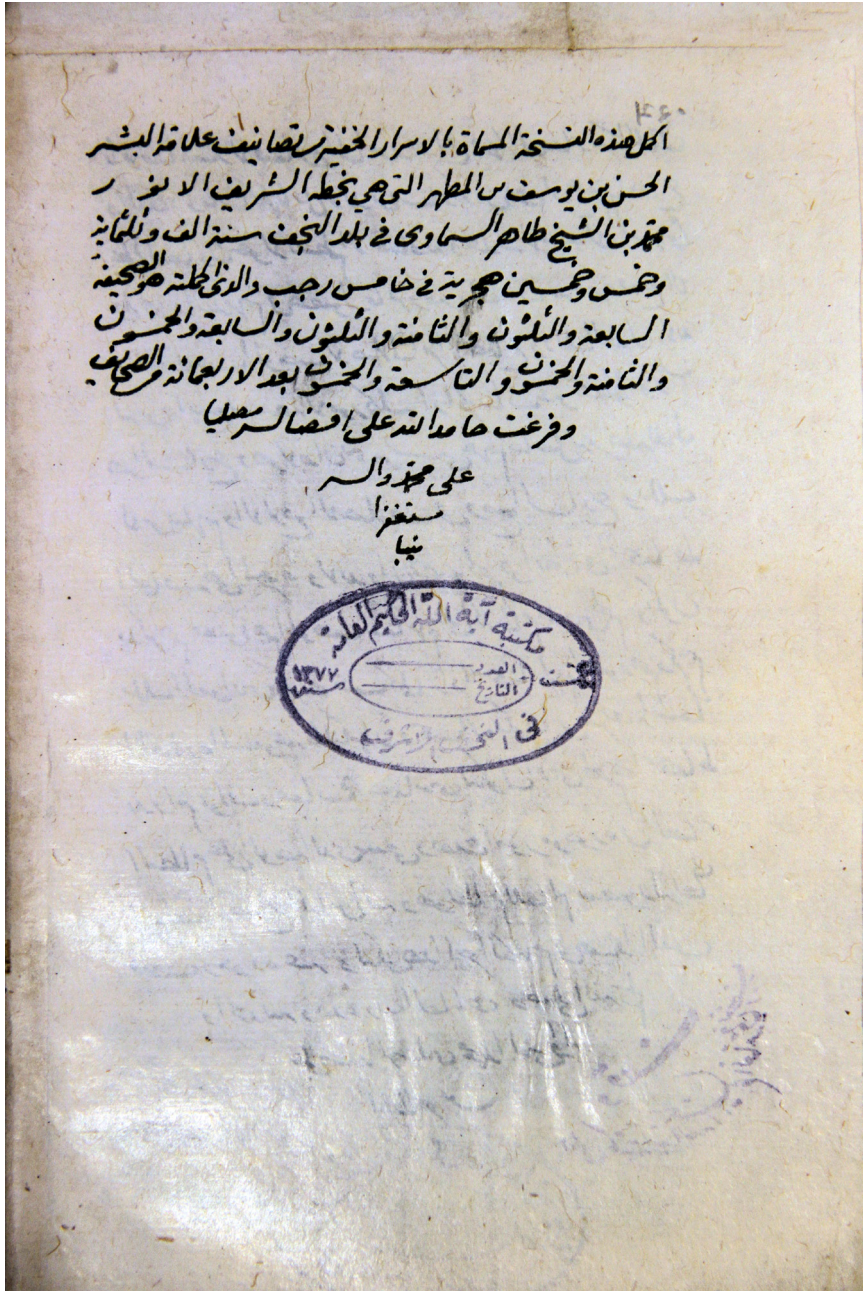 اكمل هذه النسخة المسماة بالاسرار الخفية من تصانيف علامة البشر
الحسن بن يوسف بن المطهر التي هي بخطه الشريف الانور
محمد بن الشيخ طاهر السماوي في بلد النجف سنة الف وثلثماية
وخمس وخمسين هجرية في خامس رجب والذي اكملته هو الصحيفة
السابعة والثلثون والثامنة والثلثون والسابعة والخمسون
والثامنة والخمسون والتاسعة والخمسون بعد الاربعمائة من الصحايف
وفرغت حامدا لله على افضاله مصليا
على محمد واله
مستغفرا
منيبا
مكتبة آية الله الحكيم العامة
العدد
التاريخ
سنة ١٣٧٧
في النجف الاشرف